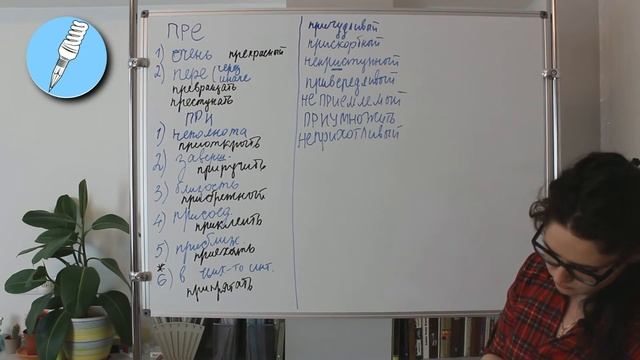 ПРЕ
1) очень прекрасный
2) пере (через иначе
превращать
преступать
ПРИ
1) неполнота
приоткрыть
2) заверш.
приручить
3) близость
прибрежный
4) присоед.
приклеить
5) приближ
приехать
*
6) в чьих-то инт.
припрятать
причудливый
прискорбный
неприступный
привередливый
неприемлемый
ПРИУМНОЖИТЬ
неприхотливый